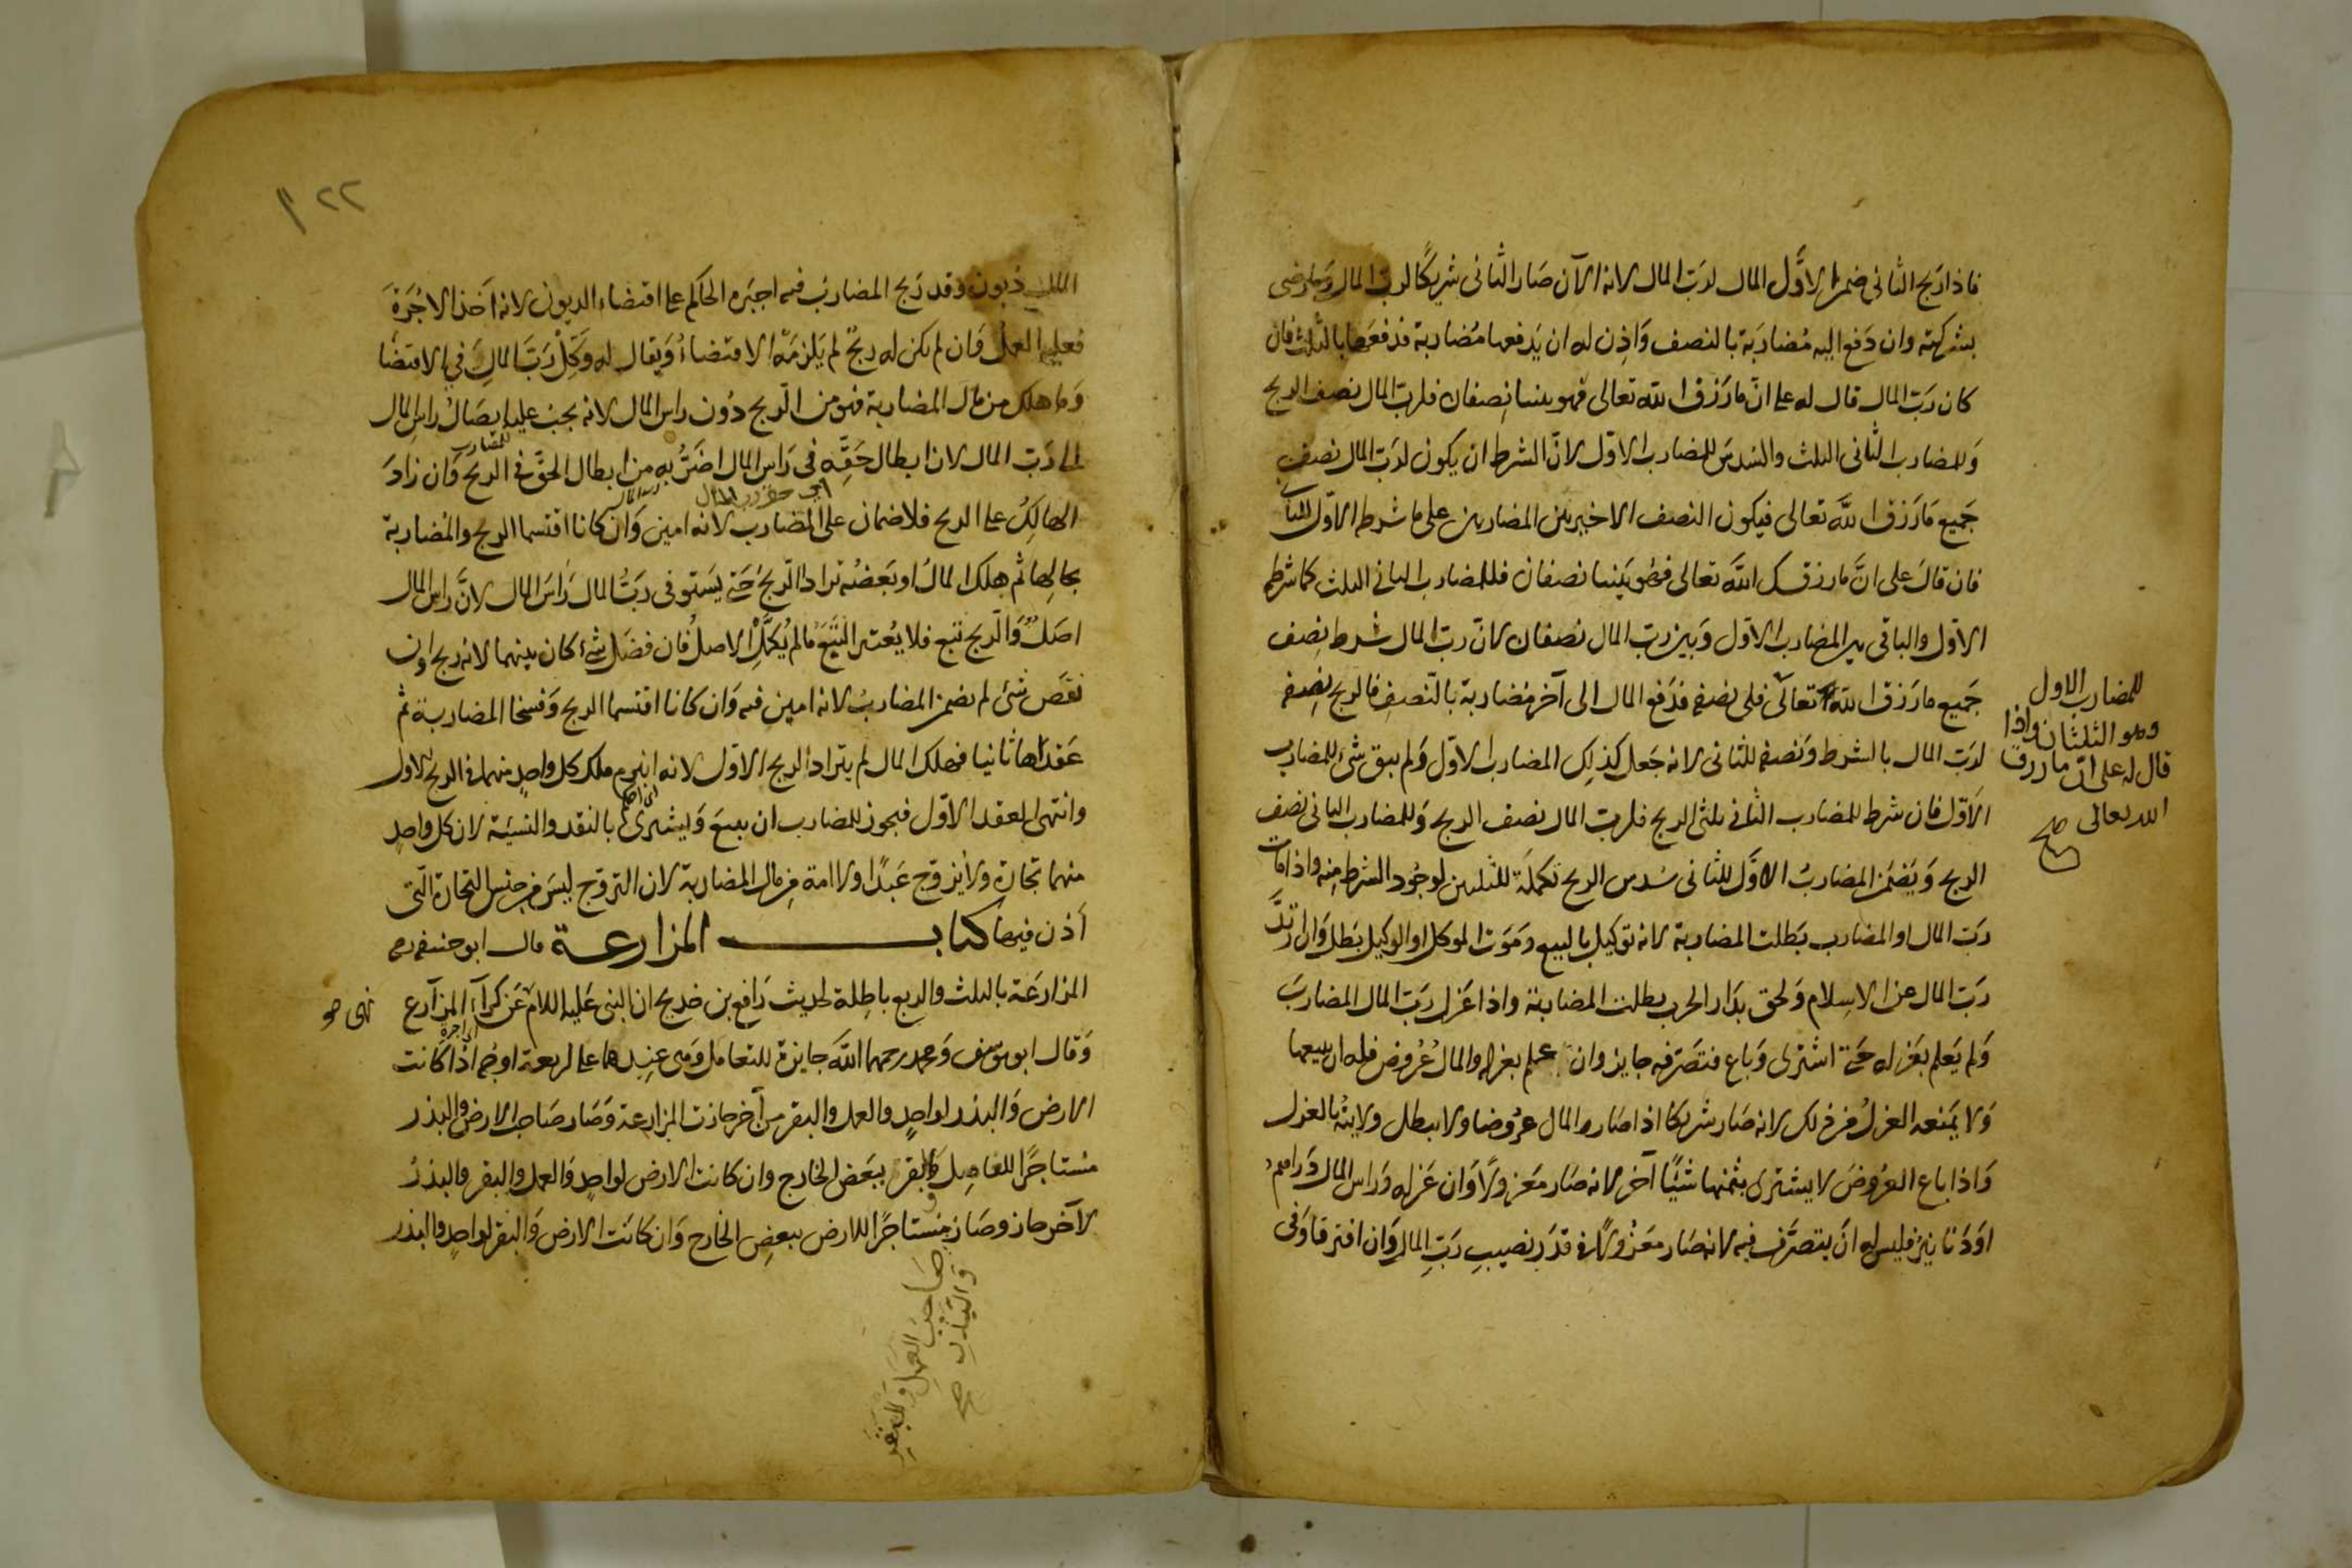 فاذا ربح الثاني ضمن الاول المال لرب المال لانه الآن صار الثاني شريكًا لرب المال وما رضى
بشركته وان دفع اليه مُضاربة بالنصف وَاذِن له ان يَدفعها مُضاربة فدفعها بالثلث فان
كان رَبّ المال قال له على انّ ما رَزق الله تعالى فهو بيننا نِصفان فلرب المال نصف الربح
وللمضارب الثّاني الثلث والسُدس للمضارب الاوّل لانّ الشرط ان يكون لرَبّ المال نصف
جَميع مَا رَزق اللَّه تعالى فيكون النصف الاخير بين المضاربين على ما شرطه الاوّل للثاني
فان قالَ على انَّ ما رزقك اللّهَ تعالى فهو بيننا نصفان فللمضارب الثاني الثلث كما شرطه
الاوّل والباقى بين المضارب الاوّل وَبين ربّ المال نصفان لانّ ربّ المال شرط نِصف
جَميع ما رَزق اللّه تعالى فلى نصفه فدَفع المال الى آخر مُضاربة بالنّصفِ فالربح نِصفه
لرَبّ المال بالشرط وَنصفه للثاني لانه جَعل كذلك المضارب الاوّل وَلم يبق شئ للمضارب
الاَوّل فان شرط للمضارب الثّاني ثلثى الربح فلربّ المال نصف الربح وَللمضارب الثاني نصف
الربح وَيَضمَن المضاربُ الاَوّل للثاني سُدس الربح تكملَة للثلثين لوجُود الشرط منه واذا مات
رَبّ المال او المضارب بَطلت المضاربة لانه توكيل بالبيع ومَوت الموكل او الوكيل بَطل وَان ارتدّ
رَبّ المال عن الاسلام وَلحق بدَار الحرب بطلت المضاربة واذا عَزل رَبّ المال المضاربَ
وَلم يَعلم بعَزله حَتّى اشترى وَباع فتصَرّفه جايز وان علم بعزله والمالُ عُروض فله ان يبيعها
وَلا يَمنعه العزلُ من ذلك لانه صَار شريكا اذا صَار المال عرُوضا ولا يبطل ولايتهُ بالعزل
وَاذا باع العرُوضَ لا يشترى بثمنها شيئًا آخر لانه صَار معَزولاً وَان عَزله وَراس المال دَراهم
اوَ دَنانير فليس له انَ يتصرَّف فيه لانه صَار معَزُولاً في قدَر نصيبِ رَبّ المالِ وَان افترقا وَفى
للمضارب الاول
وهو الثلثان واذا
قال له على انّ ما رزق
الله تعالى صح
٢٢
المال ديون وقد رَبح المضاربُ فيه اجبَره الحاكم على اقتضاء الديون لانه اَخذ الاجُرَة
فعليه العمل وَان لم يكن له ربحٌ لم يَلزمَه الاقتضاءُ وَيقال له وَكّلْ رَبّ المالِ في الاقتضَا
وَما هلك من مال المضاربة فهو من الرّبح دُون راس المال لانه يجب عليه ايصَالُ راسِ المال
الى رَبّ المال لان ابطال حَقِّه فى رَاس المال اضَرُّ به من ابطال الحقِّ فى الربح وَان زادَ
للمضارب
الهالِكُ على الربح فلا ضمان على المضارب لانه امين وَان كانا اقتسما الربح والمُضاربة
بحالها ثم هلك المالُ او بَعضُه ترادا الرّبحَ حَتّى يَستوفى ربَّ المال رَاسَ المال لانَّ راس المال
اصَلٌ وَالرّبح تبع فلا يُعتبر التَّبَعُ مَا لم يُكَمَّل الاصلُ فان فضَل شئ كان بينهما لانه ربح وان
نقَص شئ لم يضمن المضاربُ لانه امين فيه وَان كانا اقتسما الربح وَفسخا المضاربة ثم
عَقداها ثانيا فهلك المال لم يترادا الربح الاوّل لانه انبرم ملك كل واحدٍ منهما فى الربح الاول
وانتهى العقد الاوّل فيجوز للمضارب ان يبيعَ وَيشترى بالنقد والنسيَة لان كل واحدٍ
منهما تجارة ولا يُزوّج عَبدًا ولا امة من مال المضاربة لان التزوّج ليسَ من جنس التجارة الّتى
أذن فيها كتاب المزارعة قال ابو حنيفه رحمه
المزارعَة بالثلث والربع باطِلة لحديث رَافع بن خديج ان النبى عَليه السلام عَن كرآء المزآرع
نهى صح
وَقال ابو يوسف وَمحمد رحمهما اللّهَ جايزة للتعامل وَهى عنِدهما على اربعة اوجُه اذْا كانت
الارض وَالبذر لواحدٍ والعمل والبقر من آخر جازت المزارعة وَصَار صَاحب الارض والبذر
مستاجرًا للعامِل وَالبقر ببعَض الخارج وان كانت الارض لواحدٍ وَالعمل والبقر والبذرُ
لآخر جاز وصَار مستاجرًا للارض ببعضِ الخارج وَان كانَت الارض وَالبقر لواحدٍ والبذر
صَاحب العَمل وَالبَقَرِ
وَالبَذرِ صح